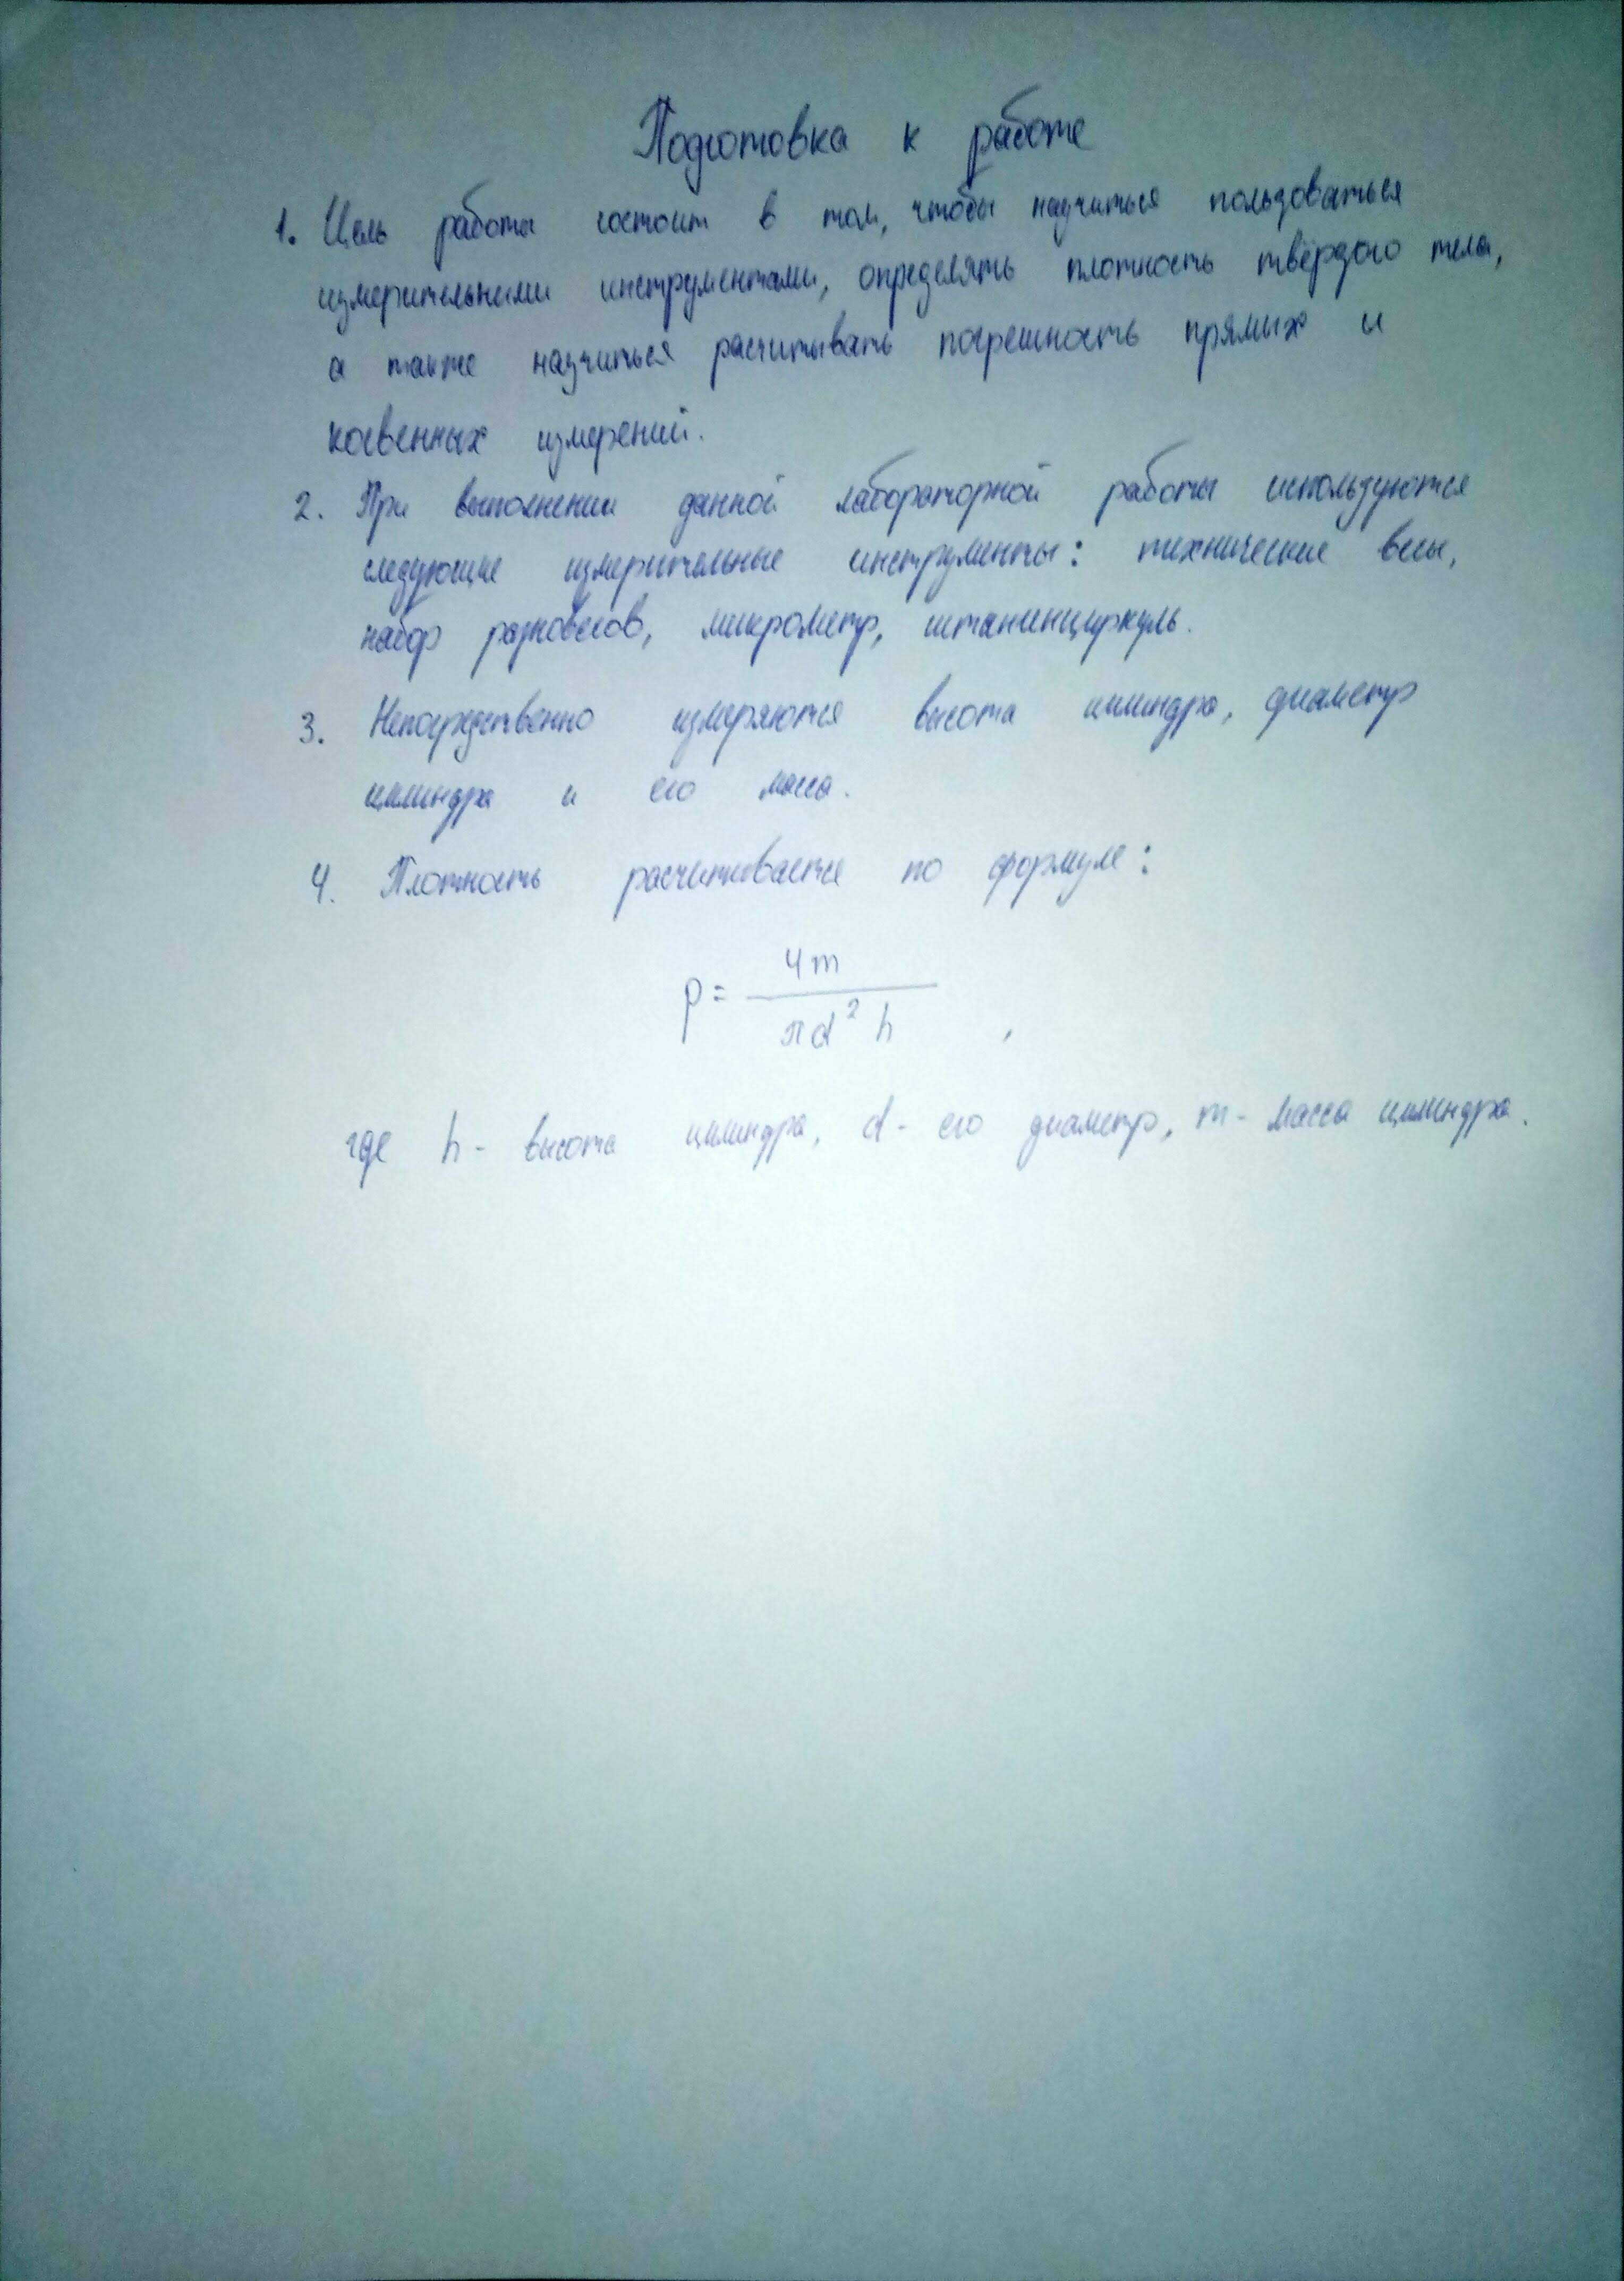 Подготовка к работе
1. Цель работы состоит в том, чтобы научиться пользоваться
измерительными инструментами, определять плотность твёрдого тела,
а также научиться расчитывать погрешность прямых и
косвенных измерений.
2. При выполнении данной лабораторной работы используются
следующие измерительные инструменты: технические весы,
набор разновесов, микрометр, штангенциркуль.
3. Непосредственно измеряются высота цилиндра, диаметр
цилиндра и его масса.
4. Плотность расчитывается по формуле:
ρ = 4m / πd² h ,
где h - высота цилиндра, d - его диаметр, m - масса цилиндра.